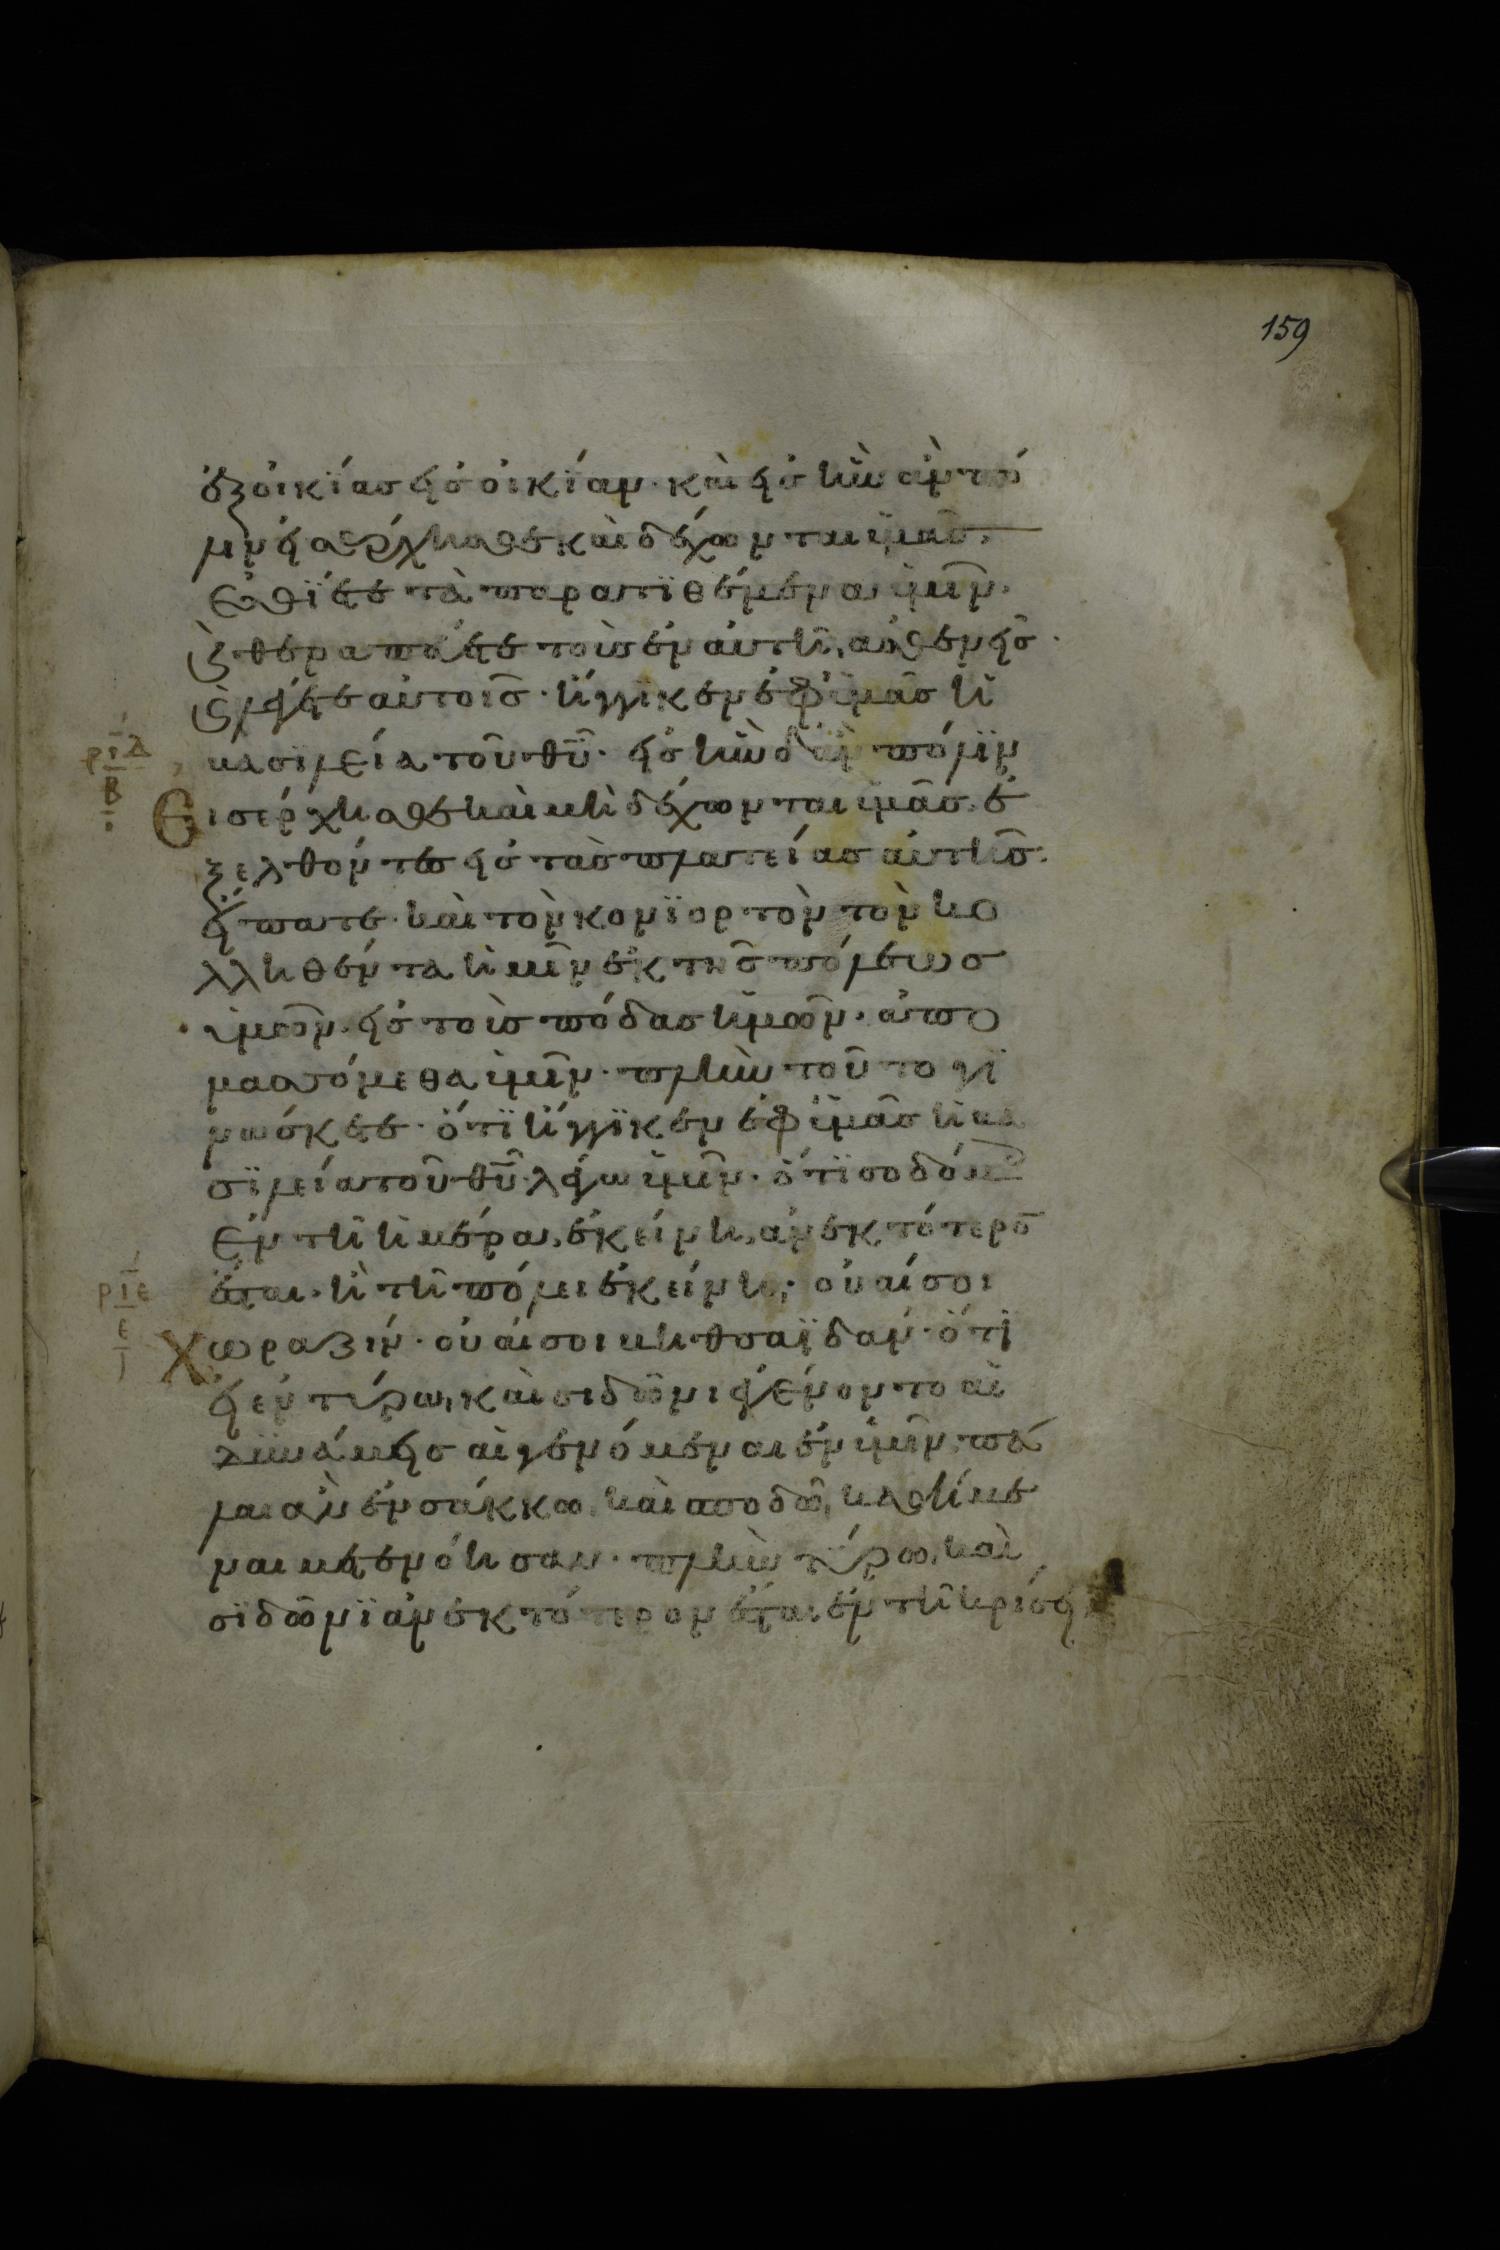 159
ἐξ οἰκίας εἰς οἰκίαν· καὶ εἰς ἣν ἂν πό
λιν εἰσέρχησθε καὶ δέχωνται ὑμᾶς.
ἐσθίετε τὰ παρατϊθέμενα ὑμῖν.
ϗ θεραπεύετε τοὺς ἐν αὐτῆ, ἀσθενεῖς.
ϗ λέγετε αὐτοῖς· ἤγγϊκεν ἐφ ὑμᾶς ἡ
βασϊλεία τοῦ θῦ· εἰς ἣν δ ἂν πόλϊν
ριδ
β
Εισέρχησθε καὶ μὴ δέχωνται ὑμᾶς. ἐ
ξελθόντες εἰς τὰς πλατείας αὐτῆς.
εἴπατε· καὶ τὸν κονϊορτὸν τὸν κο
λληθέντα ἡμῖν ἐκ τῆς πόλεως
ὑμῶν. εἰς τοὺς πόδας ἡμῶν. ἀπο
μασσόμεθα ὑμῖν· πλὴν τοῦτο γϊ
νώσκετε· ὅτϊ ἤγγϊκεν ἐφ ὑμᾶς ἡ βα
σϊλεία τοῦ θῦ· λέγω ὑμῖν· ὅτϊ σοδόμοις
ἐν τῆ ἡμέρα, ἐκείνη, ἀνεκτότερον
ἔσται· ἢ τῆ πόλει ἐκείνη· οὐαί σοι
ριε
ε
Χωραζίν· οὐαί σοι βηθσαϊδάν· ὅτϊ
εἰ ἐν τύρω, καὶ σιδῶνι ἐγένοντο αἱ
δυνάμεις αἱ γενόμεναι ἐν ὑμῖν, πά
λαι ἂν ἐν σάκκω, καὶ σποδῶ, καθήμε
ναι μετενόησαν· πλὴν τύρω, καὶ
σϊδῶνϊ ἀνεκτότερον ἔσται ἐν τῆ κρίσει